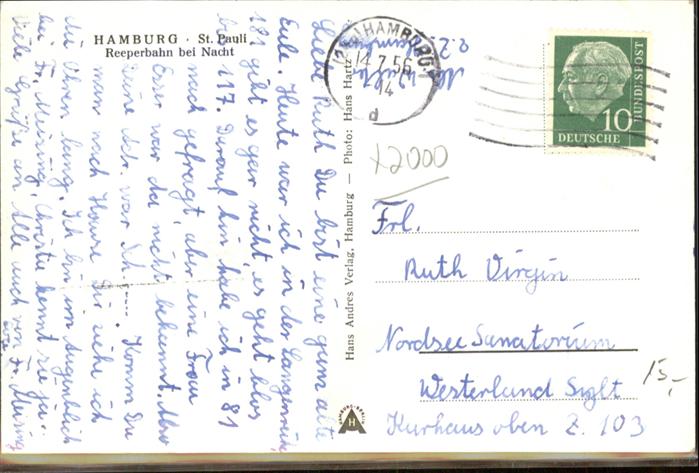 HAMBURG · St. Pauli
Reeperbahn bei Nacht
Liebe Ruth Du bist eine ganz alte
Eule. Heute war ich in der Langenreihe
181 gibt es gar nicht, es geht blos
bis 117. Darauf hin habe ich in 81
nach gefragt, aber eine Frau
Esser war da nicht bekannt. Also
Deine Adr. war Sch.... Komm Du
man nach Hause Dir ziehe ich
die Ohren lang. Ich bin im Augenblick
bei Fr. Meising, Christa kennt sie ja.
Viele Grüße an Alle auch von Fr. Meising
Hans Andres Verlag, Hamburg — Photo: Hans Hartz
HAMBURG
14.7.56
14
d
DEUTSCHE
BUNDESPOST
10
HAMBURG
H
x2000
Frl.
Ruth Virgin
Nordsee Sanatorium
Westerland Sylt
Kurhaus oben Z. 103
15,-